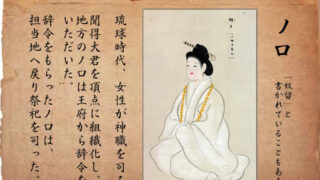 ノロ
「奴留」と
書かれていることもあ
琉球時代、女性が神職を司
聞得大君を頂点に組織化し、
地方のノロは王府から辞令
いただいた。
辞令をもらったノロは、
担当地へ戻り祭祀を司った。